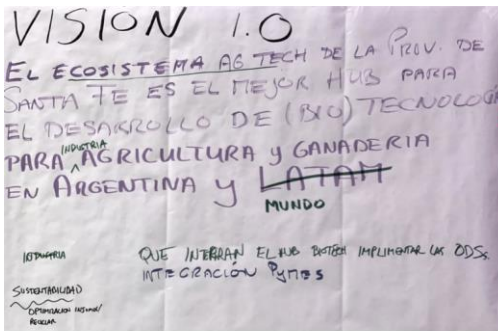 VISION 1.0
EL ECOSISTEMA AG TECH DE LA PROV. DE
SANTA FE ES EL MEJOR HUB PARA
EL DESARROLLO DE (BIO) TECNOLOGÍA
INDUSTRIA
PARA AGRICULTURA y GANADERIA
EN ARGENTINA y LATAM
MUNDO
QUE INTEGRAN EL HUB BIOTECH IMPLIMENTAR LAS ODSs
INTEGRACIÓN PyMES
SUSTENTABILIDAD
OPTIMIZACION INSUMOS/
RECICLAR